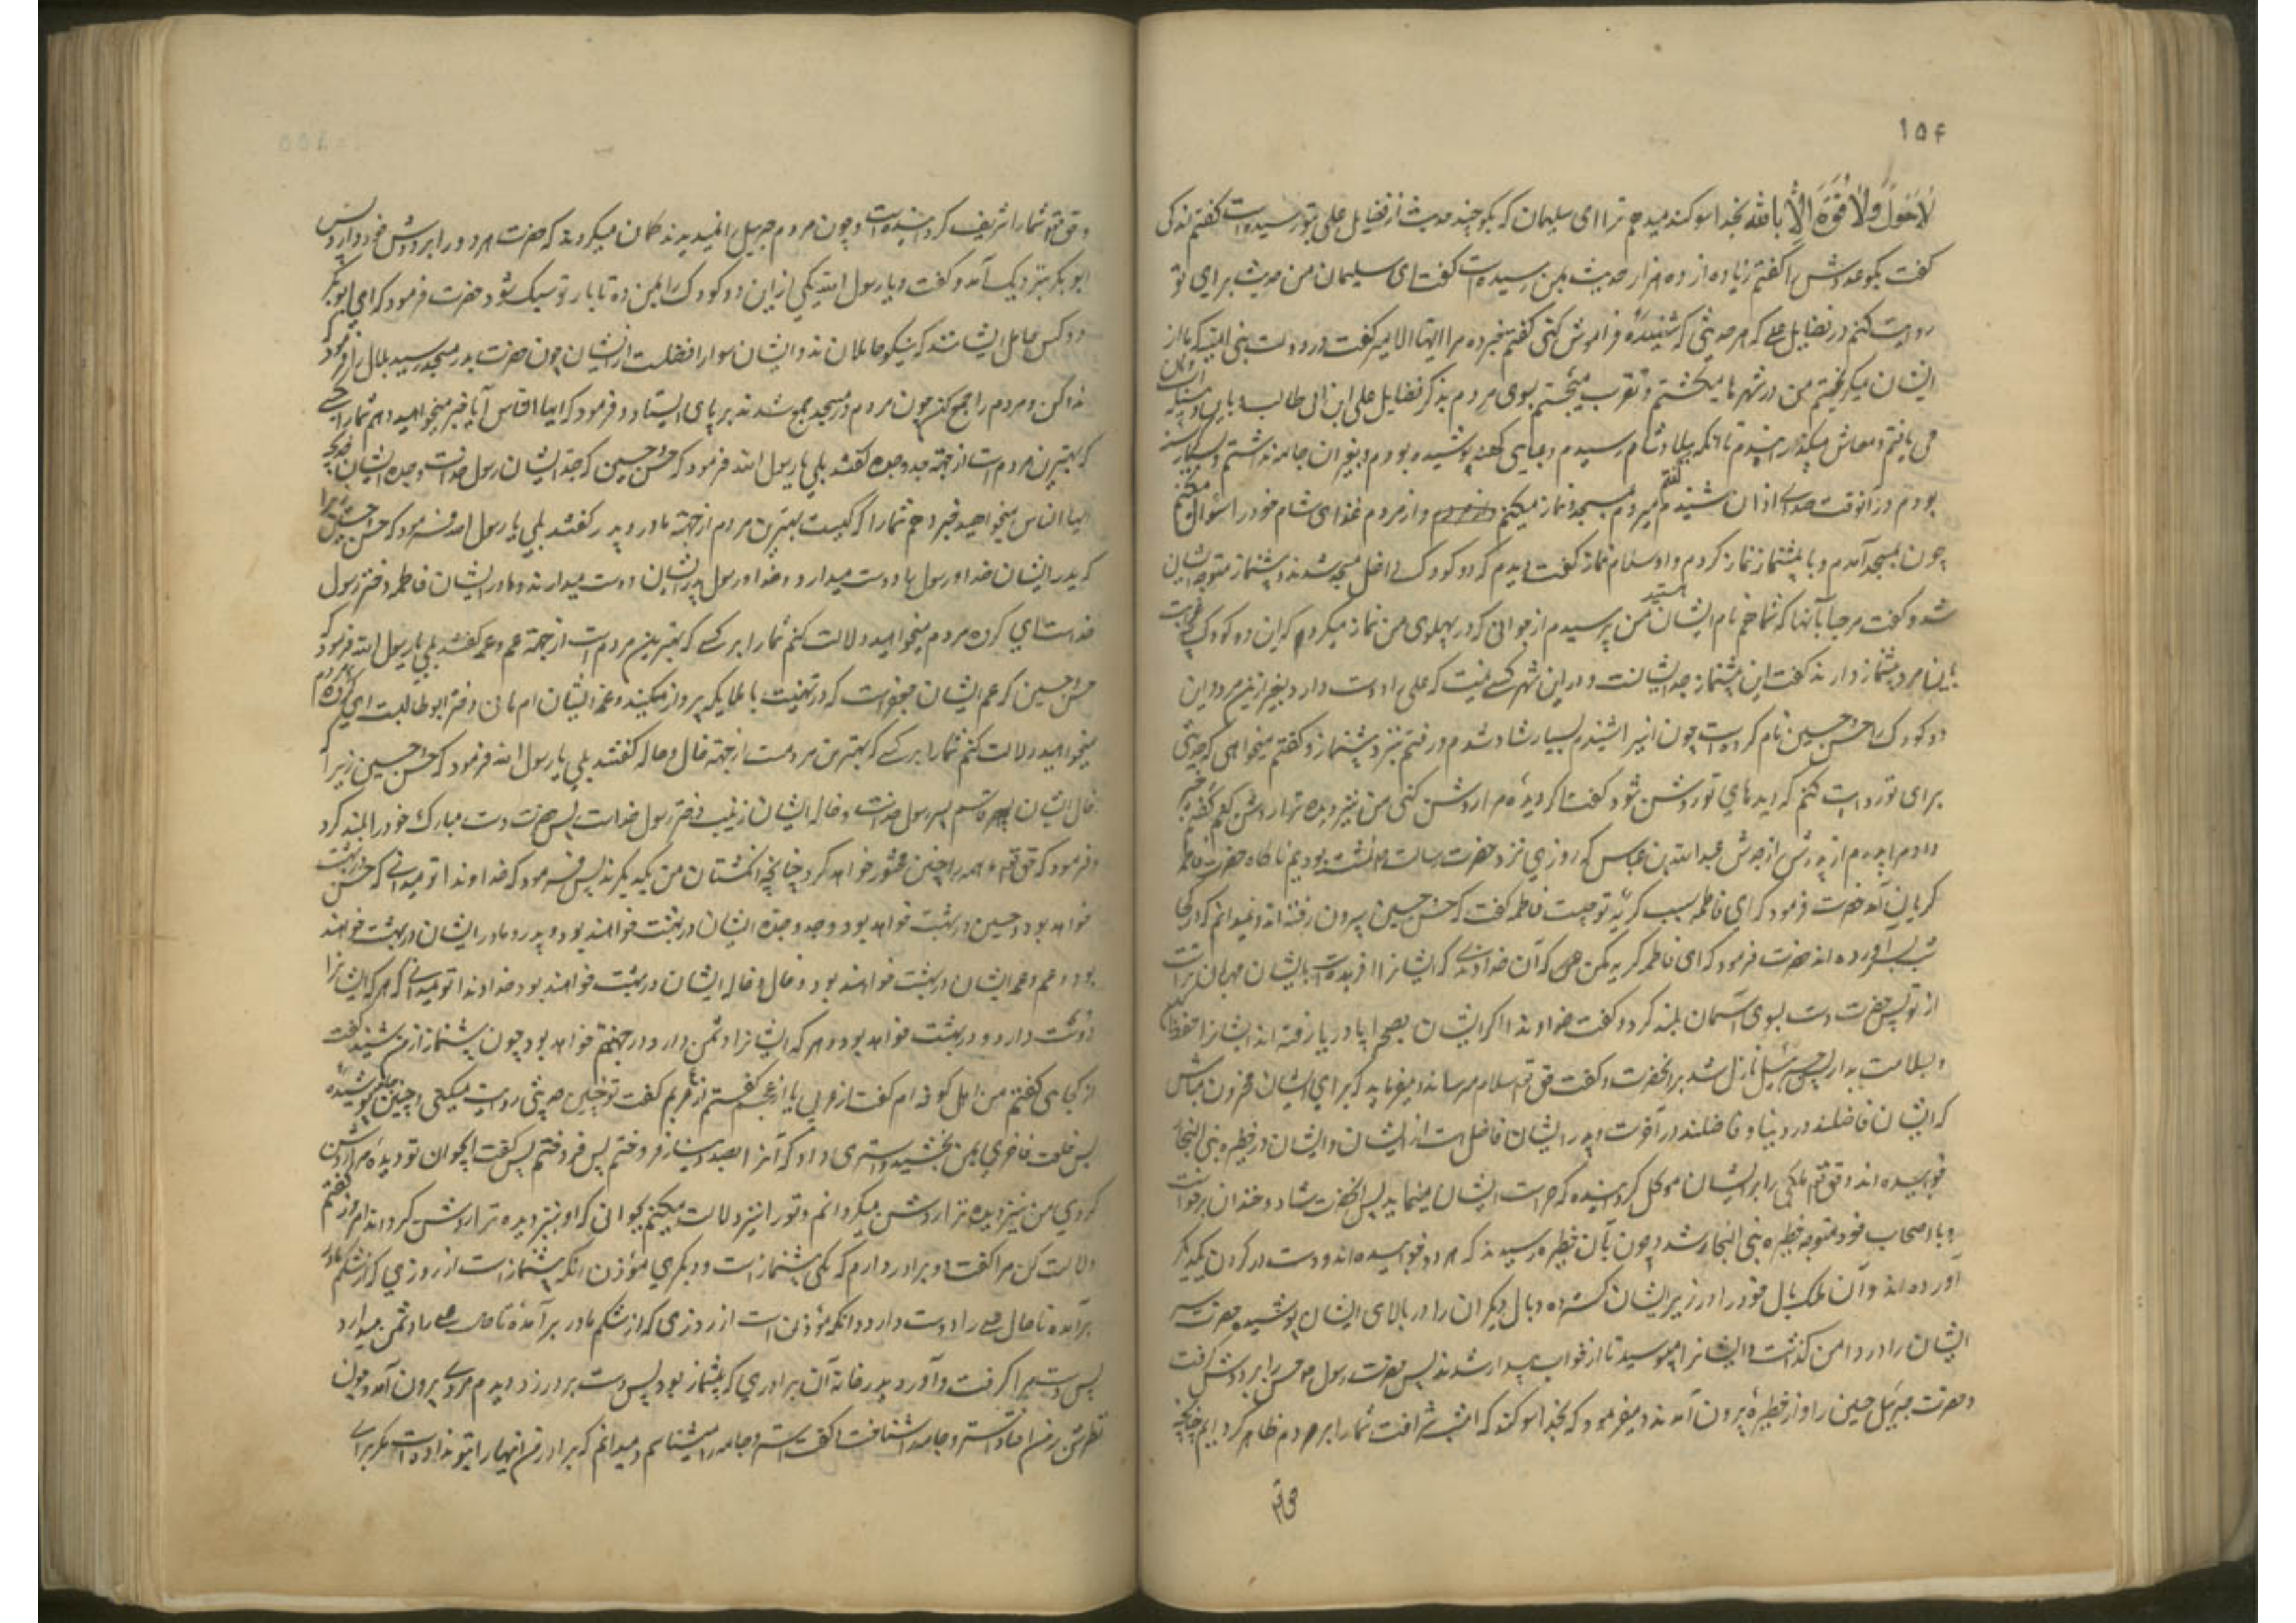 ۱۵۴
لَا حَوْلَ وَلَا قُوَّةَ اِلَّا بِالله بخدا سوکند میدهم ترا ای سلیمان که بکو چند حدیث از فضایل علی بتو رسیده است کفتم اندکی
کفت بکو عددش را کفتم زیاده از ده هزار حدیث بمن رسیده است کفت ای سلیمان من حدیث برای تو
روایت کنم در فضایل علی که هر حدیثی که شنیدهٔ فراموش کنی کفتم خبر ده مرا کفت در دولت بنی امیه که ما از
ایشان میکریختم من در شهرها میکشتم و تقرب میجستم بسوی مردم بذکر فضایل علی ابن ابی طالب
می یافتم و معاش میکذرانیدم تا آنکه ببلاد شام رسیدم و عبای کهنه پوشیده بودم و بغیر آن جامه نداشتم و بسیار کرسنه
بودم در آنوقت صدای اذان شنیدم کفتم میروم بمسجد و نماز میکنم و از مردم غذای شام خود را سؤال میکنم
چون بمسجد آمدم و با پیشنماز نماز کردم و او سلام نماز کفت دیدم که دو کودک داخل مسجد شدند و پیشنماز متوجه ایشان
شد و کفت مرحبا بآنها که شما هم نام ایشانید من پرسیدم از جوانی که در پهلوی من نماز میکرد که این دو کودک چه نسبت
باین مرد پیشنماز دارند کفت این پیشنماز جد ایشانست و در این شهر کسی نیست که علی را دوست دارد بغیر از این مرد و این
دو کودک را حسن و حسین نام کرده است چون اینرا شنیدم بسیار شاد شدم و رفتم بنزد پیشنماز و کفتم میخواهی که حدیثی
برای تو روایت کنم که دیدهای تو روشن شود کفت اکر دیدهٔ مرا روشن کنی من نیز دیده ترا روشن کنم کفتم خبر
داد مرا پدرم از پدرش از جدش عبدالله بن عباس که روزی نزد حضرت رسالت نشسته بودیم ناکاه حضرت فاطمه
کریان آمد حضرت فرمود که ای فاطمه سبب کریه تو چیست فاطمه کفت که حسن و حسین بیرون رفته اند و نمیدانم که در کجا
شب بسر آورده اند حضرت فرمود که ای فاطمه کریه مکن که آن خداوندی که ایشانرا آفریده است بایشان مهربان تر است
از تو پس حضرت دست بسوی آسمان بلند کرد و کفت خداوندا اکر ایشان بصحرا یا دریا رفته اند ایشانرا حفظ کن
و بسلامت بدار پس جبرئیل نازل شد بر آنحضرت و کفت حق تعالی سلام میرساند و میفرماید که برای ایشان محزون مباش
که ایشان فاضلند در دنیا و فاضلند در آخرت و پدر ایشان فاضل تر است از ایشان و ایشان در حظیره بنی النجار
خوابیده اند و حق تعالی ملکی را بر ایشان موکل کردانیده که حراست ایشان مینماید پس آنحضرت شاد و خندان برخواست
و با اصحاب خود متوجه حظیره بنی النجار شد و چون بآن حظیره رسیدند که هر دو خوابیده اند و دست در کردن یکدیکر
آورده اند و آن ملک بال خود را در زیر ایشان کسترده و بال دیکران را در بالای ایشان پوشیده حضرت سر
ایشان را در دامن کذاشت و ایشانرا میبوسید تا از خواب بیدار شدند پس حضرت رسول حسن را بر دوش کرفت
و حضرت جبرئیل حسین را و از حظیره بیرون آمدند و میفرمود که بخدا سوکند که امشب شرافت شما را بر مردم ظاهر کردانم چنانچه
حق تعا
حق تعا شما را شریف کردانیده است و چون مردم جبرئیل را نمیدیدند کمان میکردند که حضرت هر دو را بر دوش خود دارد پس
ابو بکر بنزدیک آمد و کفت یا رسول الله یکی از این دو کودک را بمن ده تا بار تو سبک شود حضرت فرمود که ای ابو بکر
دو کس حامل ایشانند که نیکو حاملان اند و ایشان سوار و افضلست از ایشان چون حضرت بدر مسجد رسید بلال را فرمود که
ندا کن و مردم را جمع کن چون مردم در مسجد جمع شدند بر پای ایستاد و فرمود که ایها الناس آیا خبر میخواهید دهم شما را بکسی
که بهترین مردم است از جهة جد و جده کفتند بلی یا رسول الله فرمود که حسن و حسین که جد ایشان رسول خداست و جده ایشان خدیجه
ایها الناس میخواهید خبر دهم شما را که کیست بهترین مردم از جهة مادر و پدر کفتند بلی یا رسول الله فرمود که حسن و حسین زیرا
که پدر ایشان خدا و رسول را دوست میدارد و خدا و رسول پدر ایشان را دوست میدارند و مادر ایشان فاطمه دختر رسول
خداست ای کروه مردم میخواهید دلالت کنم شما را بر کسی که بهترین مردم است از جهة عم و عمه کفتند بلی یا رسول الله فرمود که
حسن و حسین که عم ایشان جعفر است که در بهشت با ملایکه پرواز میکند و عمه ایشان ام هانی دختر ابو طالبست ای کروه مردم
میخواهید دلالت کنم شما را بر کسی که بهترین مردمست از جهة خال و خاله کفتند بلی یا رسول الله فرمود که حسن و حسین زیرا که
خال ایشان قاسم پسر رسول خداست و خاله ایشان زینب دختر رسول خداست پس حضرت دست مبارک خود را بلند کرد
و فرمود که حق تعا همه را چنین محشور خواهد کرد چنانچه انکشتان من بیکدیکرند پس فرمود که خداوندا تو میدانی که حسن در بهشت
خواهد بود و حسین در بهشت خواهد بود و جد و جده ایشان در بهشت خواهند بود و پدر و مادر ایشان در بهشت خواهند
بود و عم و عمه ایشان در بهشت خواهند بود و خال و خاله ایشان در بهشت خواهند بود خداوندا تو میدانی که هر که ایشانرا
دوست دارد در بهشت خواهد بود و هر که ایشانرا دشمن دارد در جهنم خواهد بود چون پیشنماز از من شنید کفت
از کجایی کفتم من از اهل کوفه ام کفت از عربی یا از عجم کفتم از عربم کفت تو چنین حدیثی روایت میکنی و چنین جامه پوشیدهٔ
پس خلعت فاخری بمن بخشید و استری داد که آنرا بصد دینار فروختم پس کفت ای جوان تو دیده مرا روشن
کردی من نیز دیده ترا روشن میکردانم و تو را نیز دلالت میکنم بجوانی که او نیز دیده ترا روشن کرداند امروز کفتم
دلالت کن مرا کفت دو برادر دارم که یکی پیشنماز است و دیکری مؤذن آنکه پیشنماز است از روزی که از شکم مادر
برآمده تا حال علی را دوست دارد و آنکه مؤذن است از روزی که از شکم مادر برآمده تا حال علی را دشمن میدارد
پس دست مرا کرفت و آورد بدر خانه آن برادری که پیشنماز بود پس دست بر در زد دیدم مردی بیرون آمد و چون
نظرش بر من افتاد استر و جامه را شناخت کفت استر و جامه را میشناسم و میدانم که برادر من اینها را بتو نداده است مکر برای